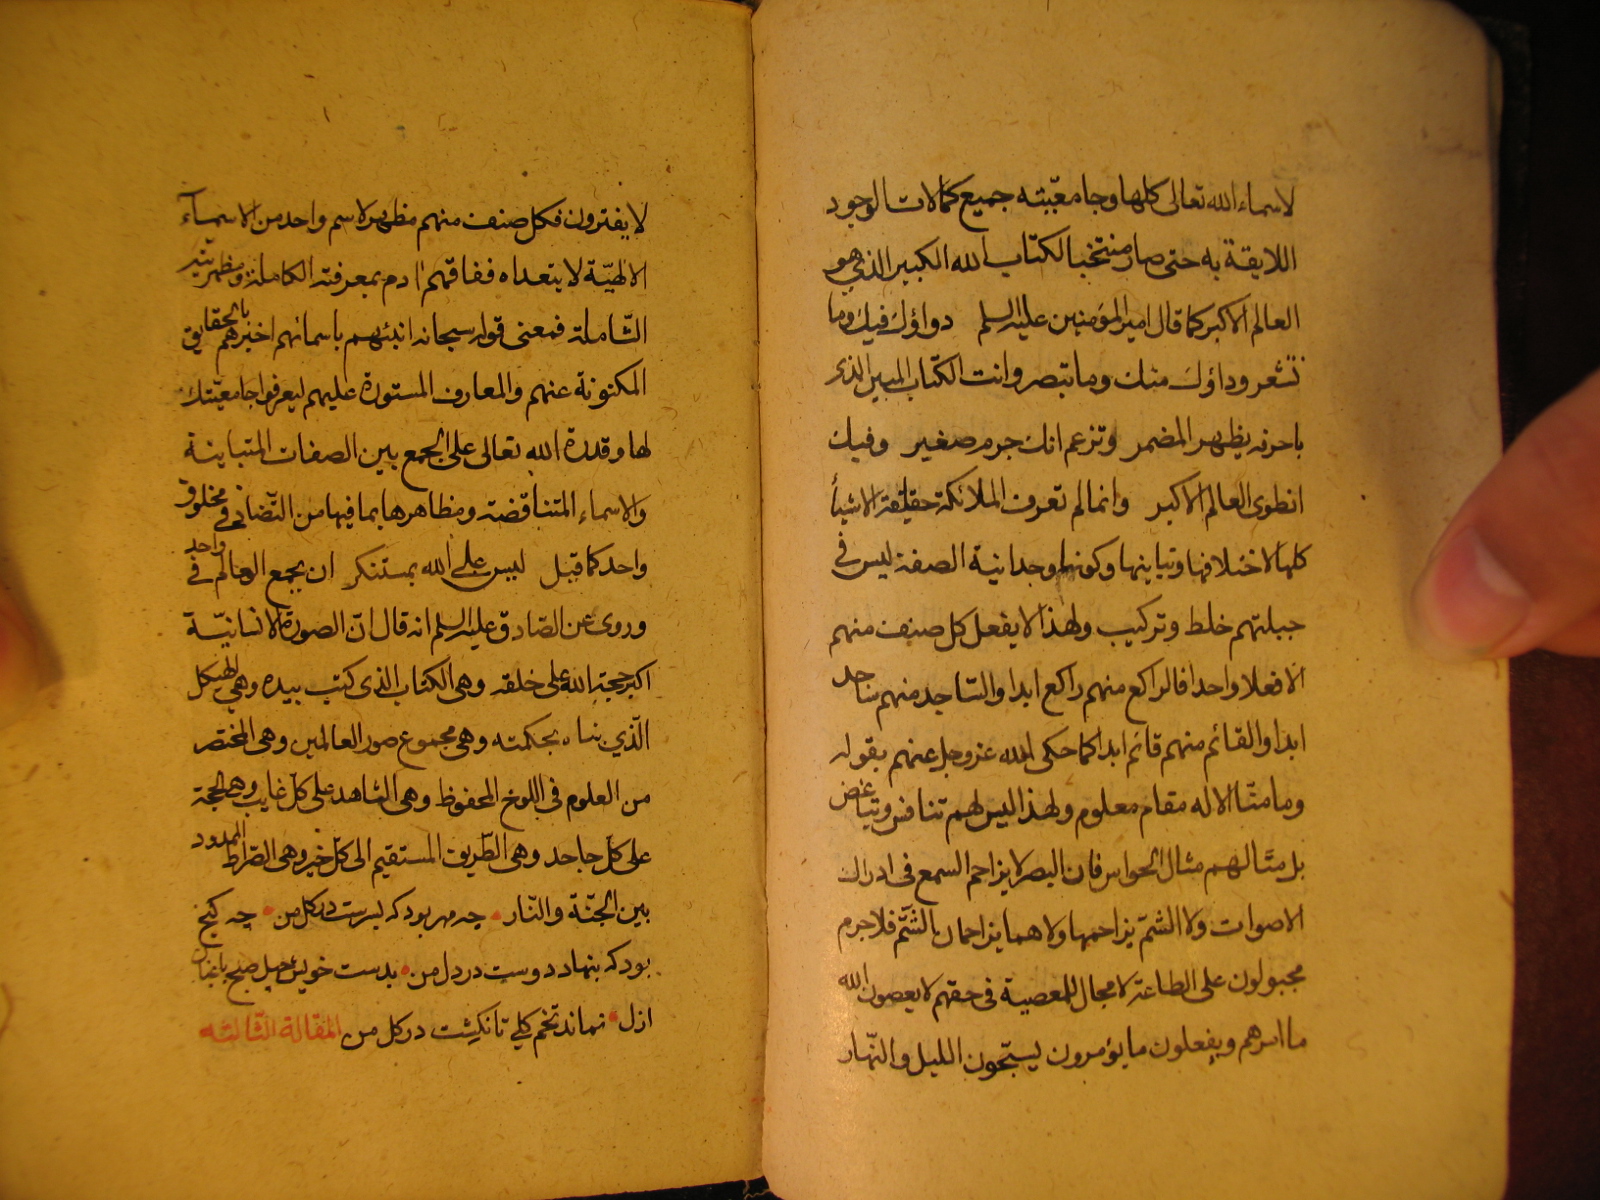 لاسماء الله تعالى كلها وجامعيّته جميع كمالات الوجود
اللايقة به حتى صار منتخبا لكتاب الله الكبير الذي هو
العالم الاكبر كما قال امير المؤمنين عليه السلم دواؤك فيك وما
تشعر وداؤك منك وما تبصر وانت الكتاب المبين الذى
باحرفه يظهر المضمر وتزعم انك جرم صغير وفيك
انطوى العالم الاكبر وانما لم تعرف الملائكة حقايق الاشيأ
كلها لاختلافها وتباينها وكونهم وحدانية الصفة ليس في
جبلتهم خلط وتركيب ولهذا لا يفعل كل صنف منهم
الا فعلا واحدا فالراكع منهم راكع ابدا والساجد منهم ساجد
ابدا والقائم منهم قائم ابدا كما حكى الله عز وجل عنهم بقوله
وما منّا الا له مقام معلوم ولهذا ليس لهم تنافر وتباغض
بل مثالهم مثال الحواس فان البصر لا يزاحم السمع في ادراك
الاصوات ولا الشمّ يزاحمها ولا هما يزاحمان الشمّ فلا جرم
مجبولون على الطاعة لا مجال للمعصية في حقهم لا يعصون الله
ما امرهم ويفعلون ما يؤمرون يسبّحون الليل والنّهار
لا يفترون فكل صنف منهم مظهر لاسم واحد من الاسمآء
الالهيّة لا يتعداه ففاقهم ادم بمعرفته الكاملة ومظهريته
الشّاملة فمعنى قوله سبحانه انبئهم باسمائهم اخبرهم بالحقايق
المكنونة عنهم والمعارف المستورة عليهم ليعرفوا جامعيّتك
لها وقدرة الله تعالى على الجمع بين الصفات المتباينة
والاسماء المتناقضة ومظاهرها بما فيها من التّضاد في مخلوق
واحد كما قيل ليس على الله بمستنكر ان يجمع العالم في واحد
وروى عن الصّادق عليه السلم انه قال انّ الصورة الانسانيّة
اكبر حجة الله على خلقه وهى الكتاب الذى كتب بيده وهي الهيكل
الّذي بناه بحكمته وهي مجموع صور العالمين وهى المختصر
من العلوم في اللوح المحفوظ وهى الشاهد على كل غايب وهى الحجة
على كلّ جاحد وهى الطّريق المستقيم الى كلّ خير وهى الصّراط الممدود
بين الجنّة والنّار چه مهر بود كه بسرشت در گل من چه گنج
بود كه بنهاد دوست در دل من بدست خويش چهل صبح باغبان
ازل نماند تخم گلى تا نكشت در گل من المقالة الثّالثة